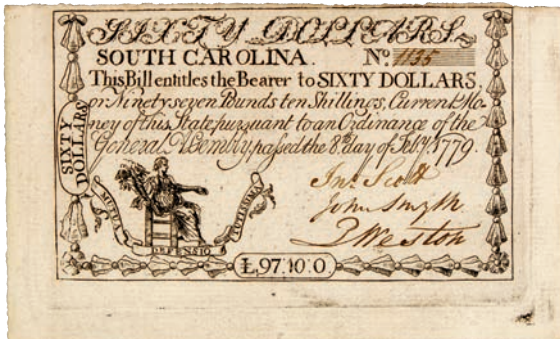 SIXTY DOLLARS
SOUTH CAROLINA. No. 1135
This Bill entitles the Bearer to SIXTY DOLLARS,
or Ninety seven Pounds ten Shillings, Current Mo-
ney of this State, pursuant to an Ordinance of the
General Assembly, passed the 8th day of Feby. 1779
SIXTY
DOLLARS
Jno. Scott
John Smyth
P Weston
MUTUA DEFENSIO TUTISSIMA
£.97.10.0.